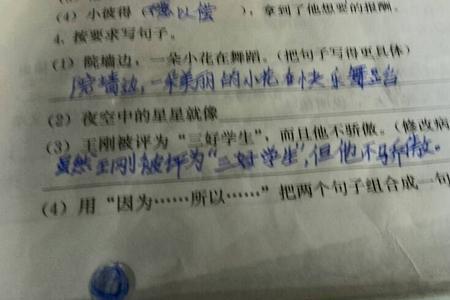 (4) 小彼得 ( 得以偿 ), 拿到了他想要的报酬。
4. 按要求写句子。
(1) 院墙边, 一朵小花在舞蹈。(把句子写得更具体)
院墙边,一朵美丽的小花在快乐舞蹈
(2) 夜空中的星星就像
(3) 王刚被评为“三好学生”, 而且他不骄傲。(修改病
虽然王刚被评为“三好学生”,但他不骄傲。
(4) 用“因为……所以……”把两个句子组合成一句